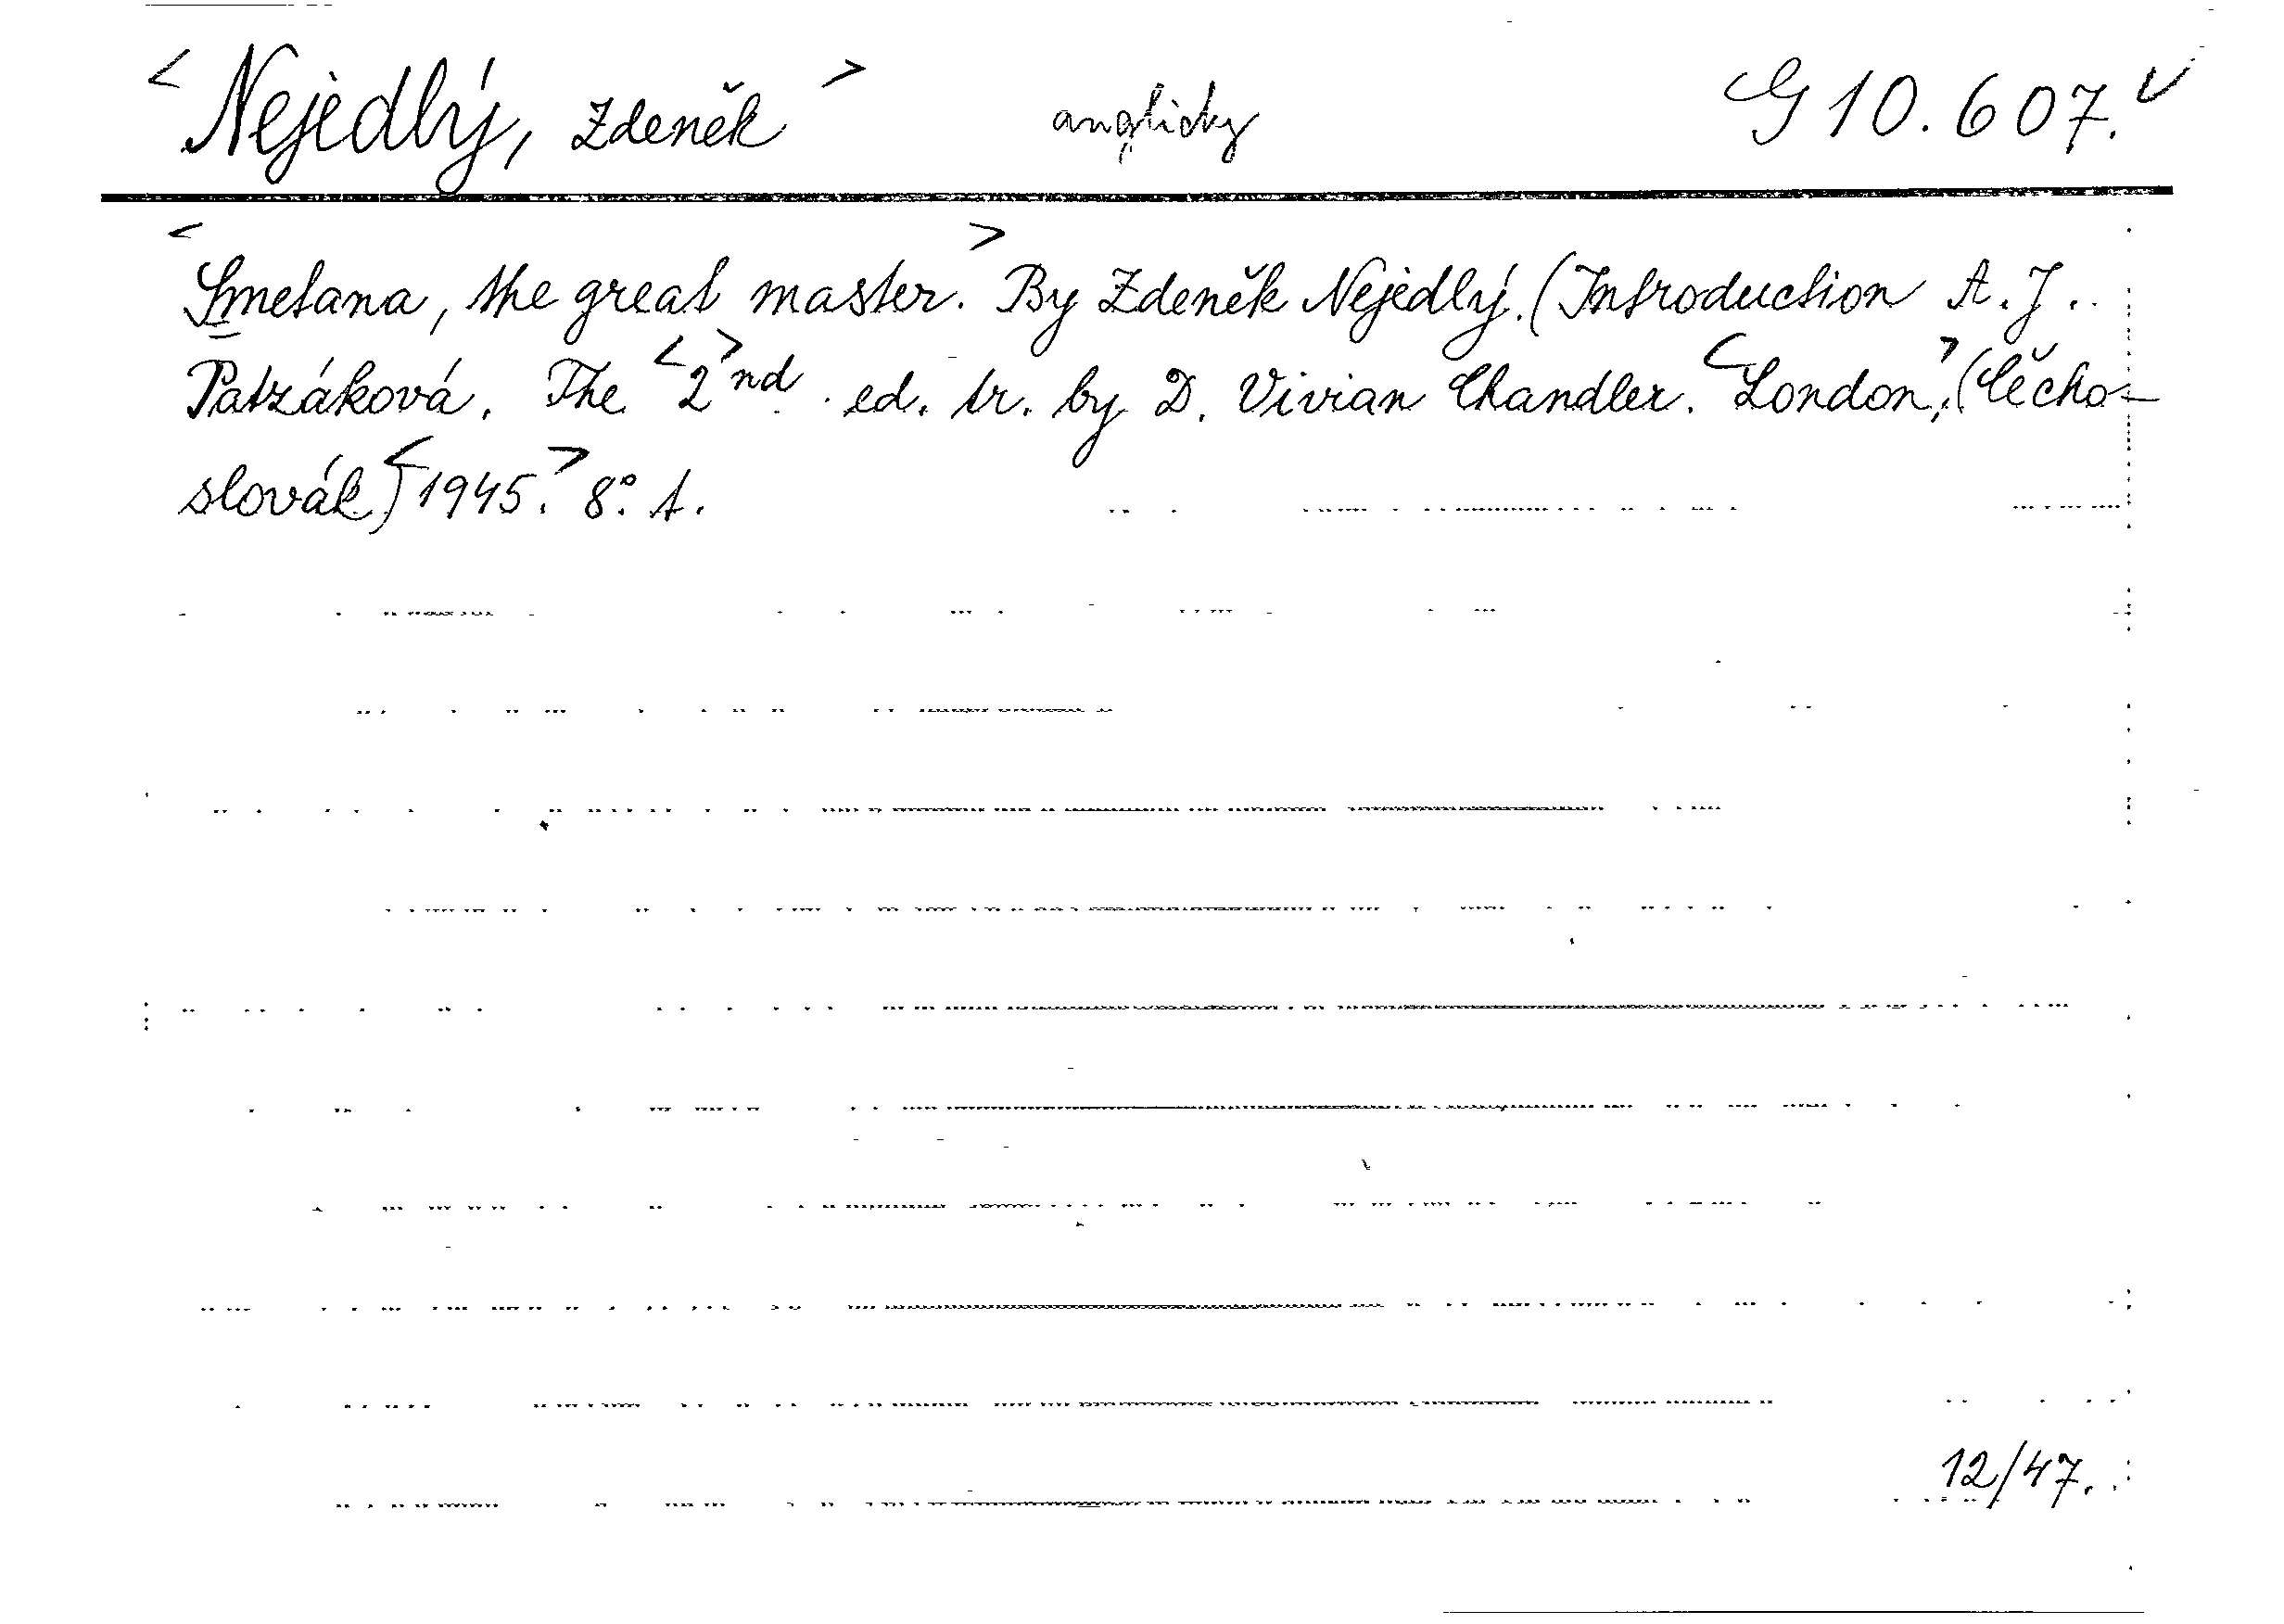 <Nejedlý, Zdeněk> anglicky G 10.607. v
<Smetana, the great master.> By Zdeněk Nejedlý. (Introduction A. J.
Patzáková. The <2>nd ed. tr. by D. Vivian Chandler. <London,> (Čecho-
slovák) <1945.> 8°. A.
12/47.